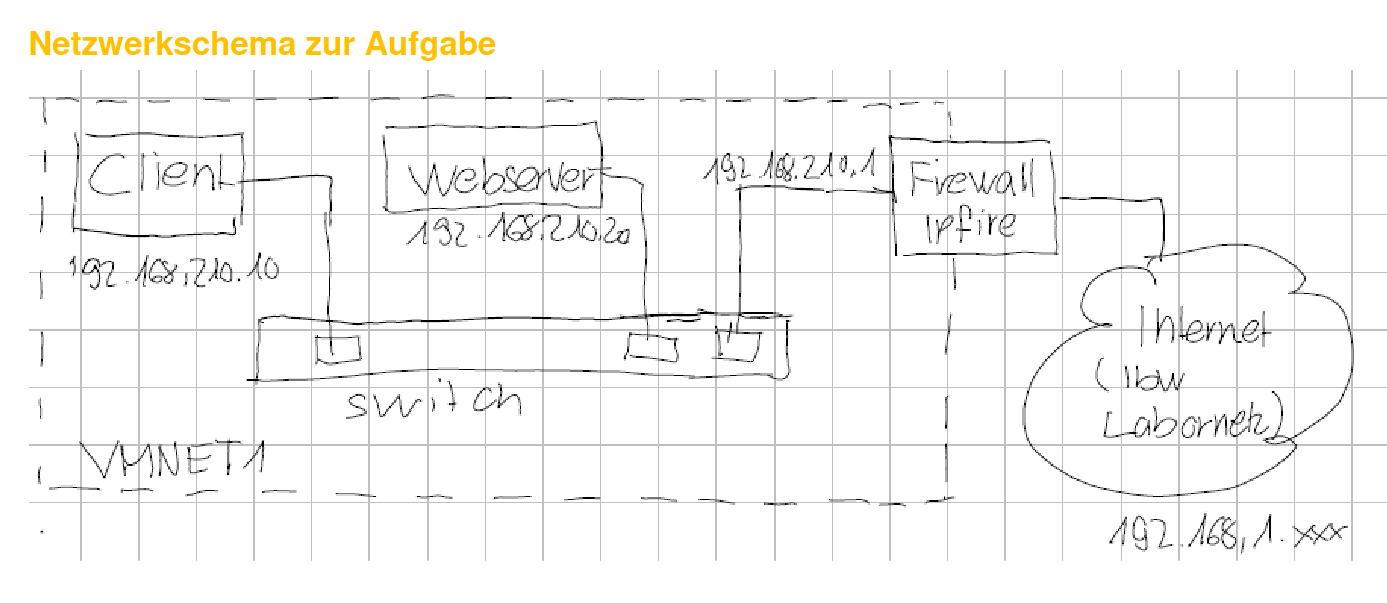 Netzwerkschema zur Aufgabe
Client
192.168.210.10
Webserver
192.168.210.20
192.168.210.1
Firewall
ipfire
switch
VMNET1
Internet
(
Labornetz)
192.168.1.xxx